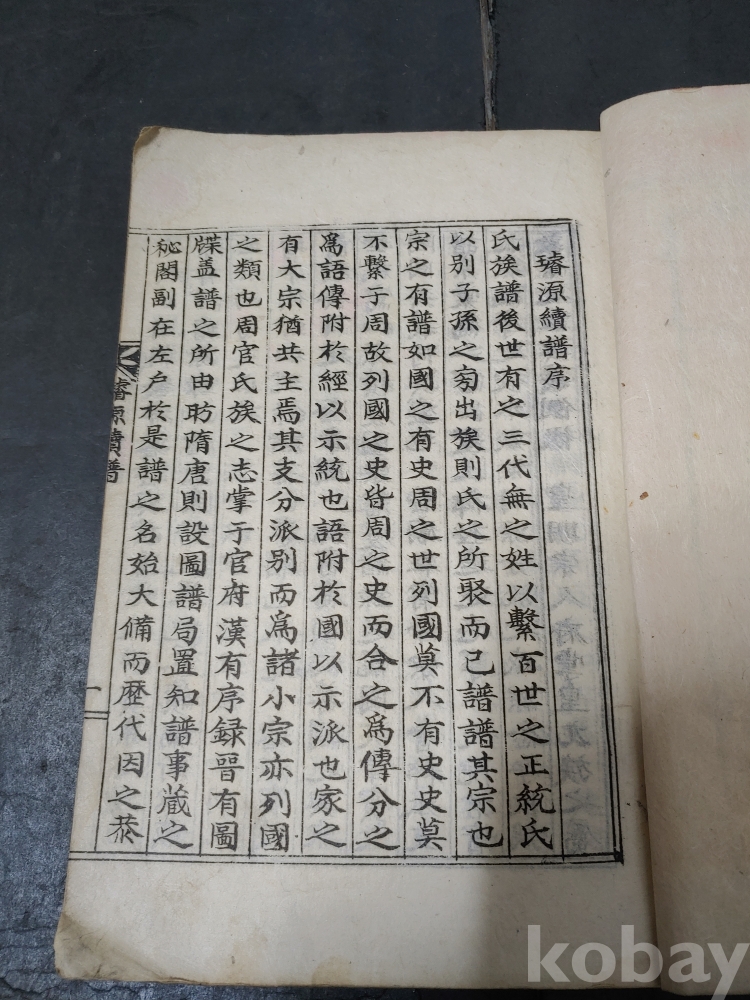 璿源續譜序
氏族譜後世有之三代無之姓以繫百世之正統氏
以別子孫之旁出族則氏之所聚而已譜譜其宗也
宗之有譜如國之有史周之世列國莫不有史史莫
不繫于周故列國之史皆周之史而合之爲傳分之
爲語傳附於經以示統也語附於國以示派也家之
有大宗猶共主焉其支分派別而爲諸小宗亦列國
之類也周官氏族之志掌于官府漢有序録晉有圖
牒盖譜之所由昉隋唐則設圖譜局置知譜事蔵之
秘閣副在左户於是譜之名始大備而歴代因之恭
璿源續譜
一
kobay